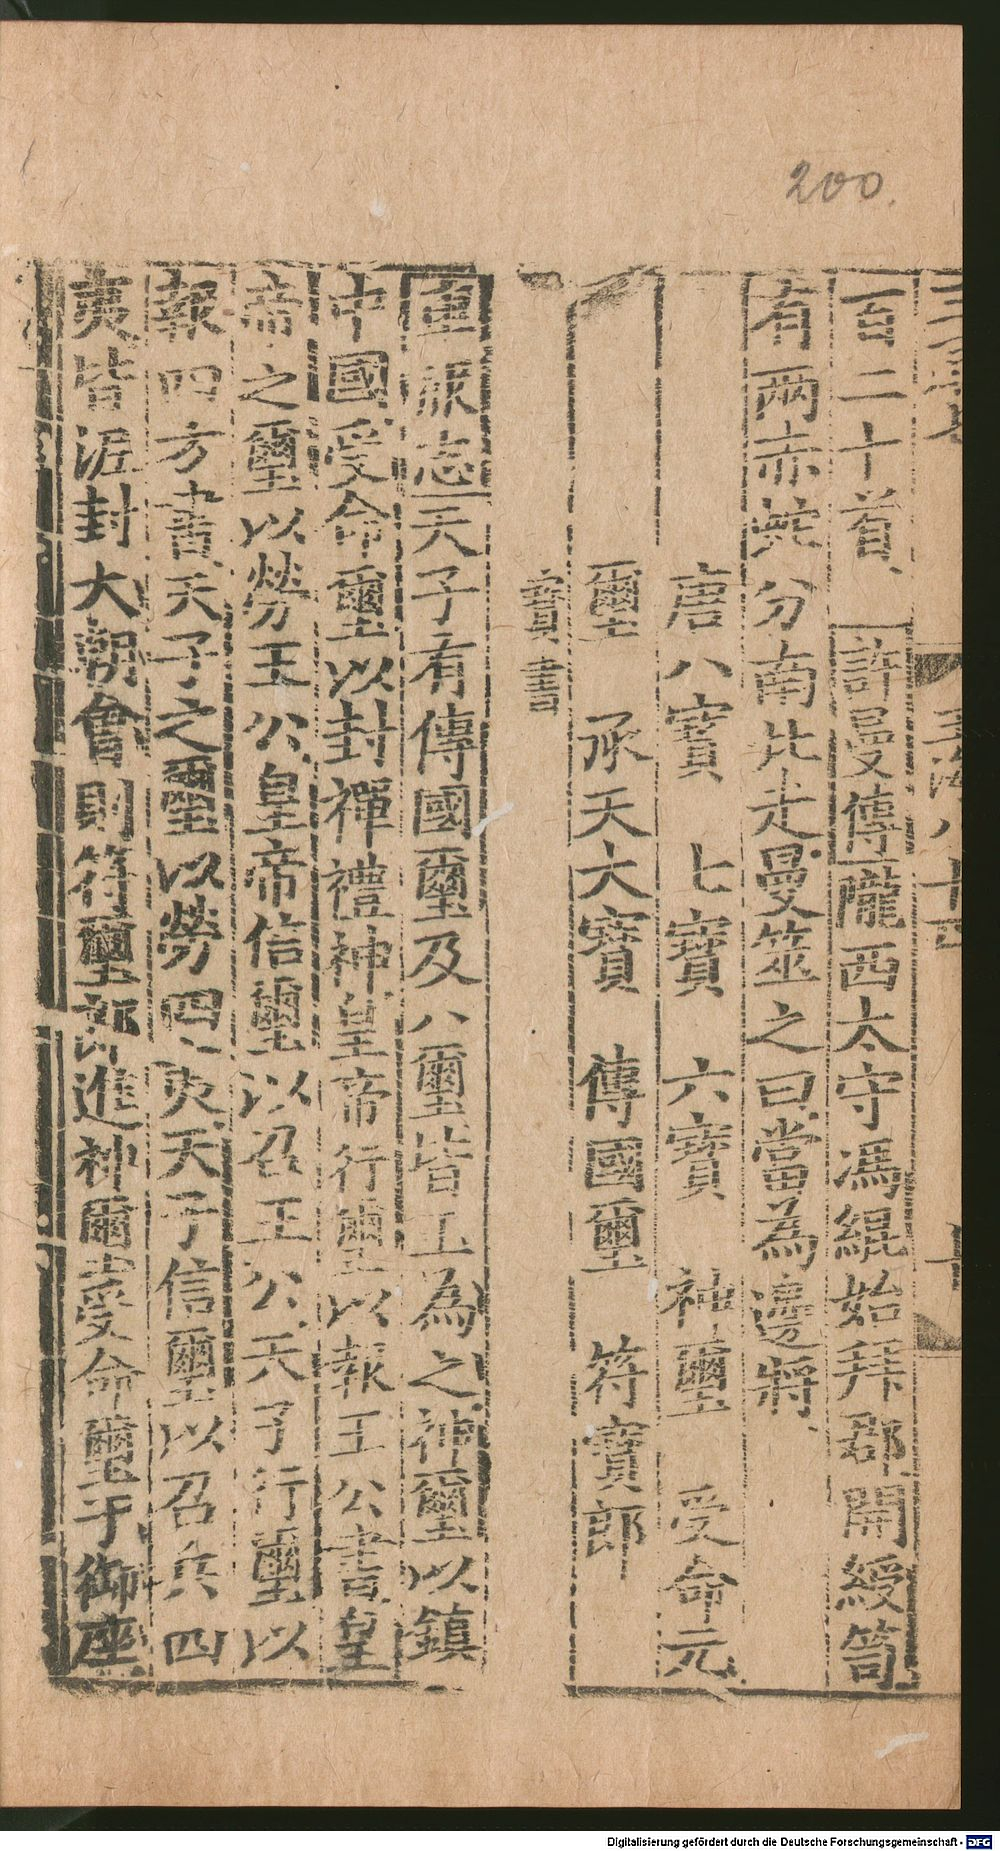 200.
玉海八十四
百二十首、許曼傳隴西太守馮緄始拜郡開綬笥
有兩赤蛇分南北走曼筮之曰當為邊將、
唐八寳　七寳　六寳　神璽　受命元
璽　承天大寳　傳國璽　符寳郎
寳書
車服志天子有傳國璽及八璽皆玉為之神璽以鎮
中國受命璽以封禪禮神皇帝行璽以報王公書皇
帝之璽以勞王公皇帝信璽以召王公天子行璽以
報四方書天子之璽以勞四夷天子信璽以召兵四
夷皆泥封大朝會則符璽郎進神璽受命璽于御座
Digitalisierung gefördert durch die Deutsche Forschungsgemeinschaft - DFG